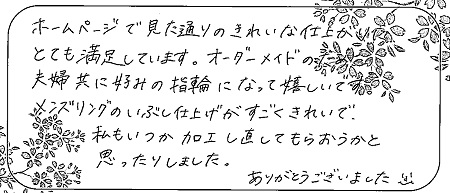 ホームページで見た通りのきれいな仕上がりに
とても満足しています。オーダーメイドの
夫婦共に好みの指輪になって嬉しいで
メンズリングのいぶし仕上げがすごくきれいで、
私もいつか加工し直してもらおうかと
思ったりしました。
ありがとうございました